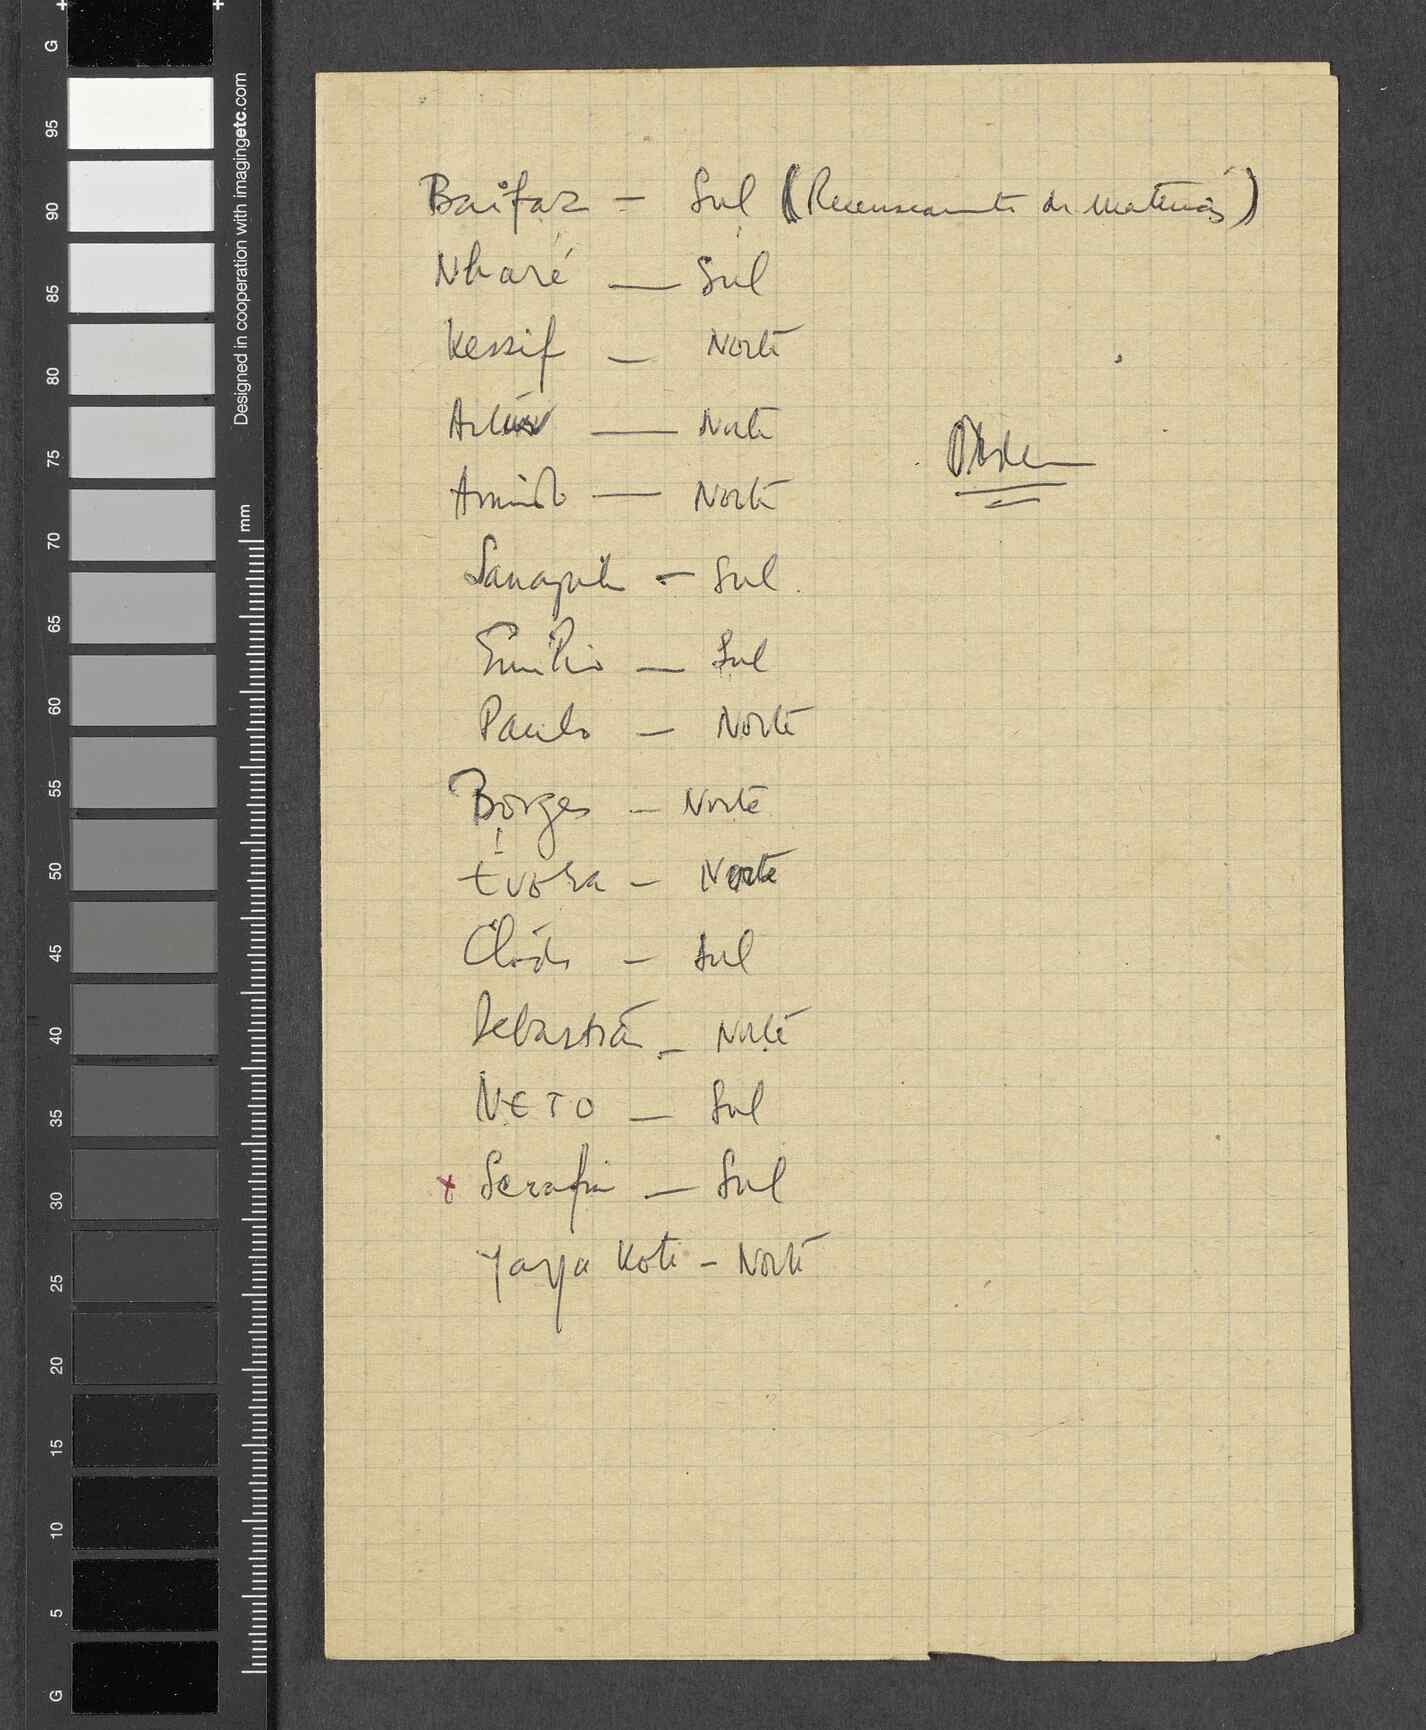 Baifaz – Sul (Recenseamento de Materiais)
Nharé — Sul
Kessif — Norte
Artur — Norte
Arnaldo — Norte
— Sul
Emílio — Sul
Paulo — Norte
Borges — Norte
Évora — Norte
— Sul
Sebastião – Norte
NETO — Sul
x Serafim — Sul
Yaya Koté – Norte
G
95
90
85
80
75
70
65
60
55
50
45
40
35
30
25
20
15
10
5
G
Designed in cooperation with imagingetc.com
mm